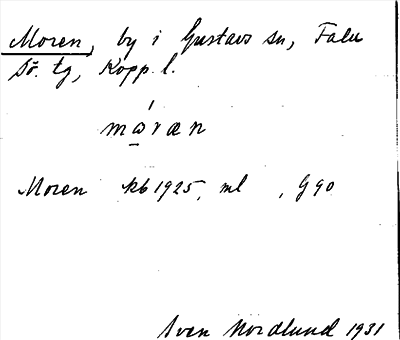 Moren, by i Gustavs sn, Falu
Sö. tg, Kopp. l.
mɷ́ræn
Moren kb 1925, ml , G 90
Sven Nordlund 1931